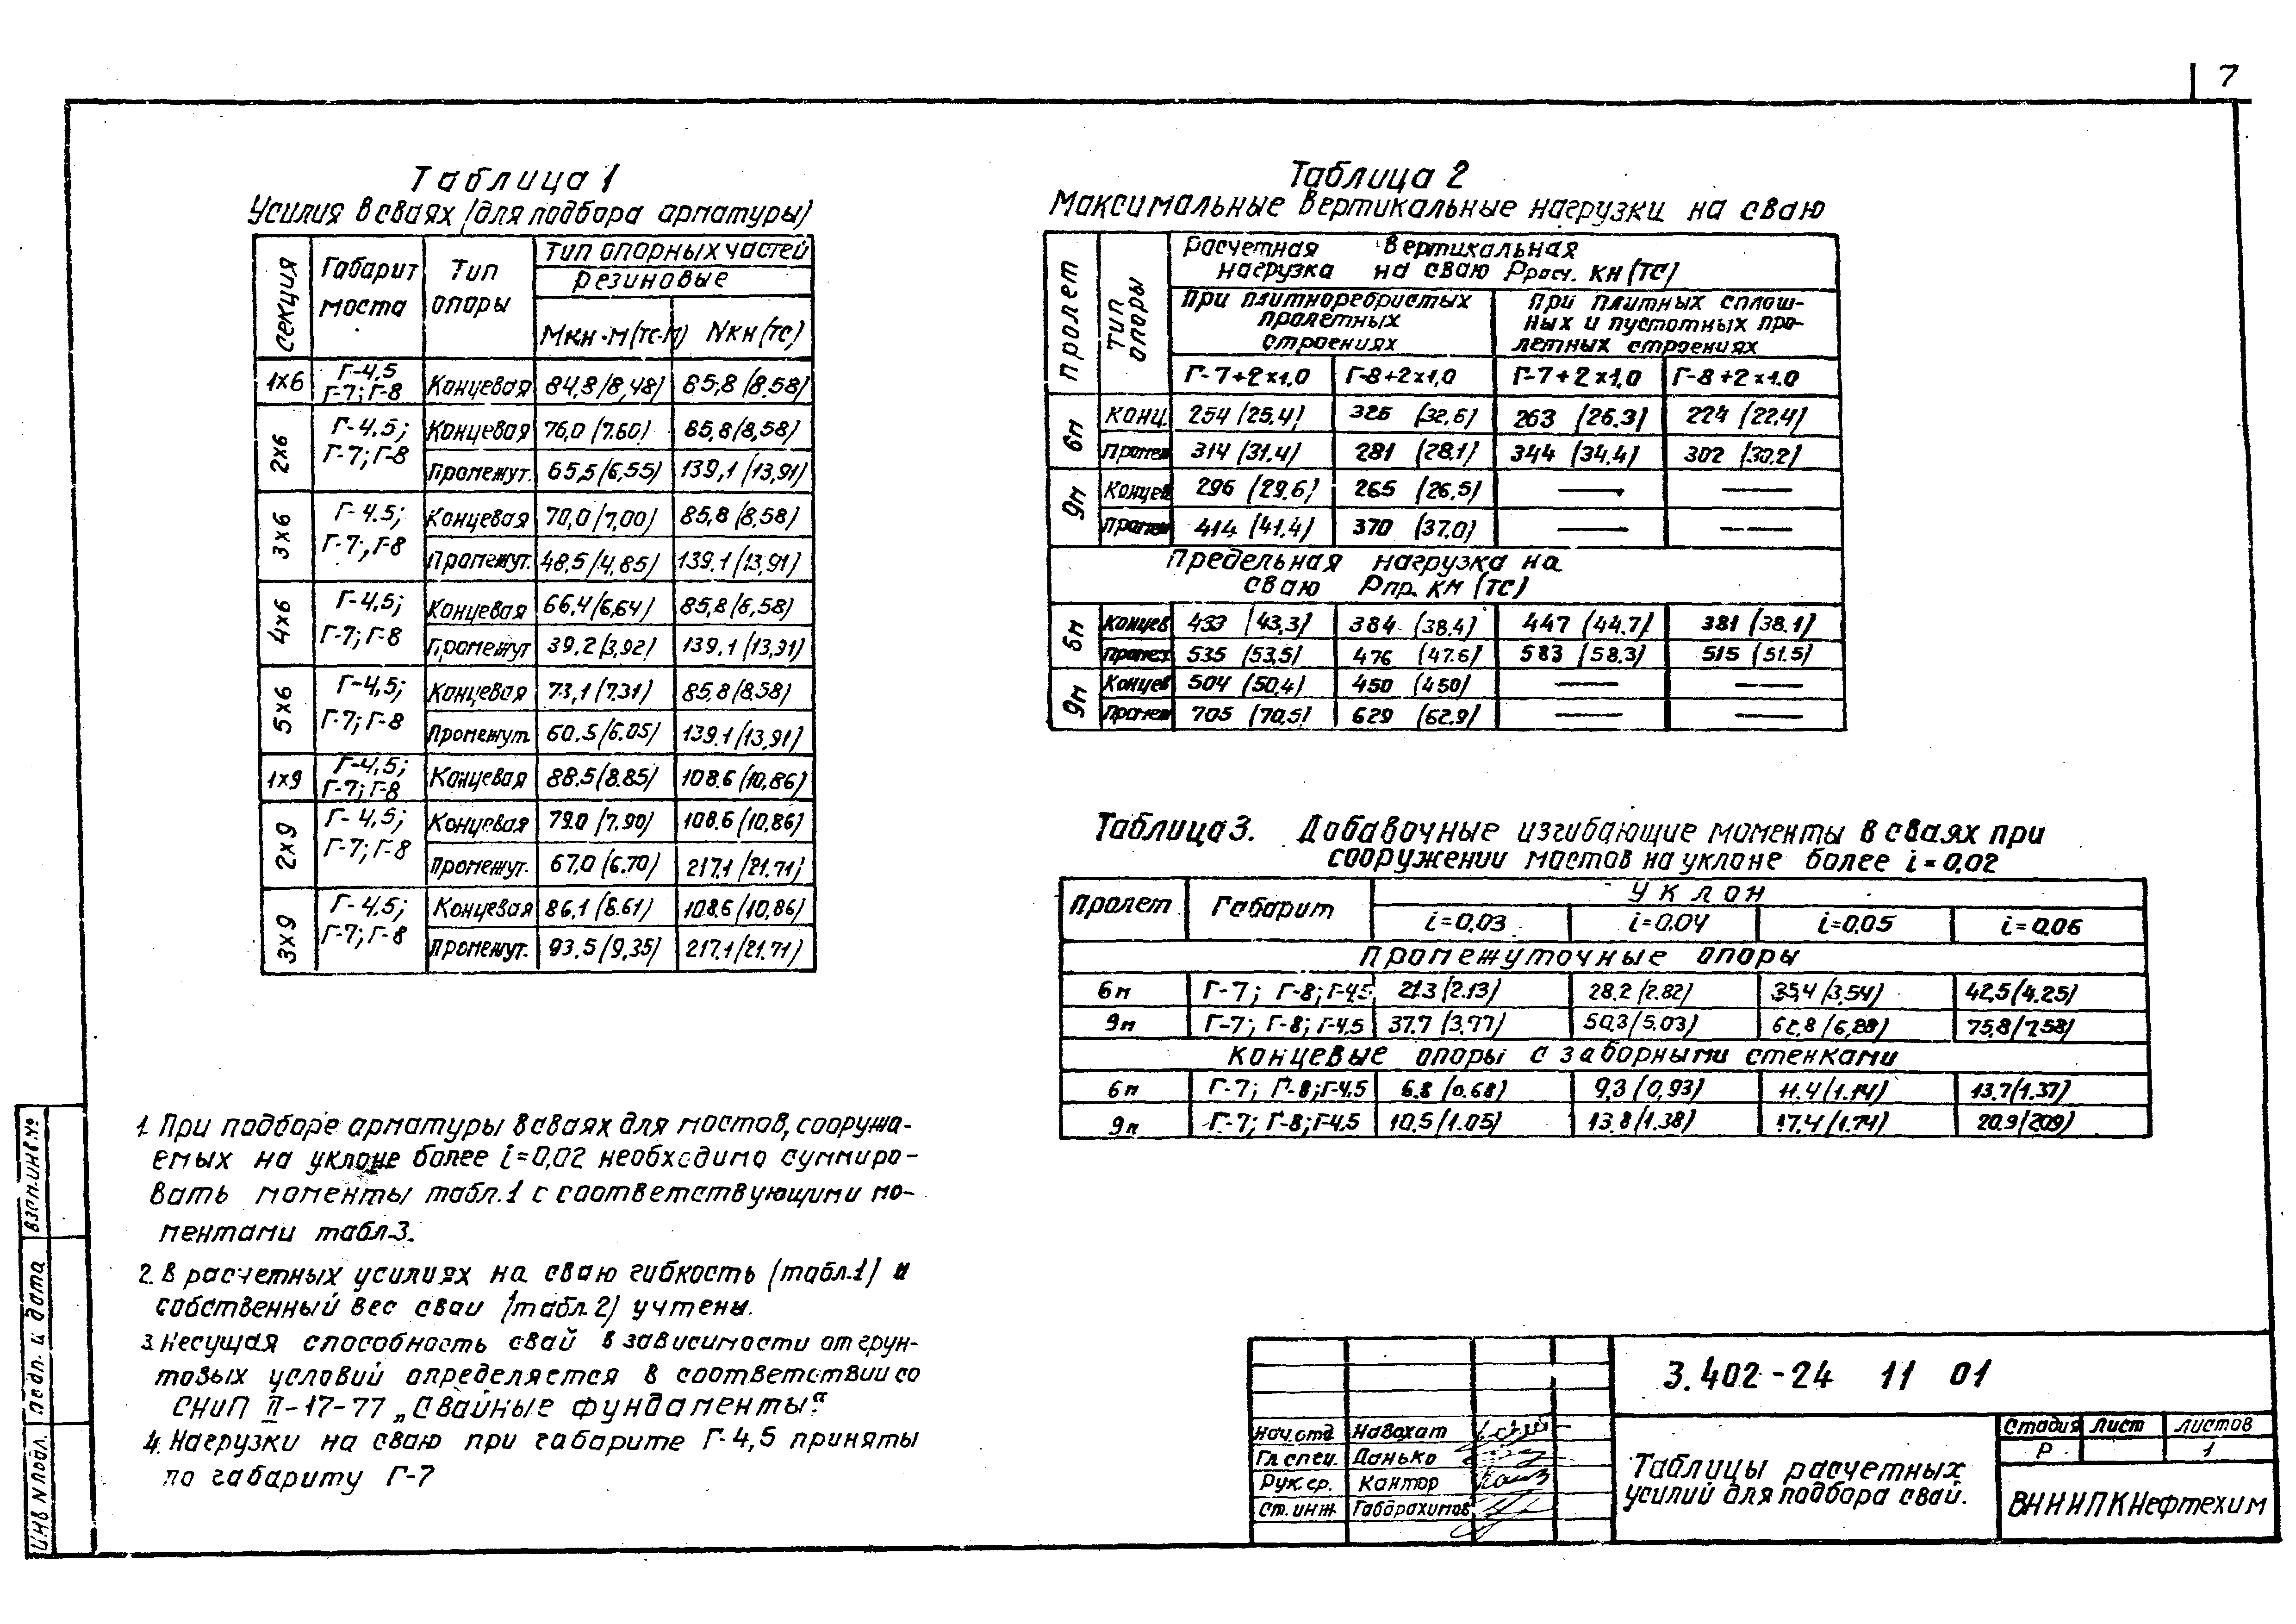 7
Таблица 1
Усилия в сваях (для подбора арматуры)
секция | Габарит моста | Тип опоры | Тип опорных частей
резиновые
Мкн·м(тс·м) | Nкн(тс)
1х6 | Г-4,5 Г-7; Г-8 | Концевая | 84,8(8,48) | 85,8(8.58)
2х6 | Г-4.5; Г-7; Г-8 | Концевая | 76,0(7.60) | 85,8(8,58)
Промежут. | 65,5(6,55) | 139,1(13,91)
3х6 | Г-4.5; Г-7; Г-8 | Концевая | 70,0(7,00) | 85,8(8,58)
Промежут. | 48,5(4,85) | 139.1(13,91)
4х6 | Г-4,5; Г-7; Г-8 | Концевая | 66,4(6,64) | 85,8(8,58)
Промежут | 39.2(3,92) | 139.1(13,91)
5х6 | Г-4,5; Г-7; Г-8 | Концевая | 73,1(7.31) | 85,8(8.58)
Промежут. | 60.5(6.05) | 139.1(13,91)
1х9 | Г-4,5; Г-7; Г-8 | Концевая | 88.5(8.85) | 108.6(10,86)
2х9 | Г-4,5; Г-7; Г-8 | Концевая | 79.0(7.90) | 108.6(10,86)
Промежут. | 67,0(6.70) | 217.1(21.71)
3х9 | Г-4,5; Г-7; Г-8 | Концевая | 86,1(8.61) | 108.6(10,86)
Промежут. | 93.5(9,35) | 217.1(21.71)
Таблица 2
Максимальные вертикальные нагрузки на сваю
пролет | Тип опоры | Расчетная вертикальная
нагрузка на сваю Ррасч. кн(тс)
При плитноребристых
пролетных
строениях
При плитных сплош-
ных и пустотных про-
летных строениях
Г-7+2х1,0 | Г-8+2х1,0 | Г-7+2х1,0 | Г-8+2х1.0
6м | Конц. | 254(25,4) | 326 (32,6) | 263 (26.3) | 224 (22,4)
Промеж | 314(31.4) | 281 (28.1) | 344 (34.4) | 302 (30.2)
9м | Концев | 296 (29.6) | 265 (26,5) | — | —
Промеж | 414 (41.4) | 370 (37.0) | — | —
Предельная нагрузка на
сваю Рпр. кн (тс)
6м | Концев | 433 (43,3) | 384 (38.4) | 447 (44.7) | 381 (38.1)
Промеж | 535 (53,5) | 476 (47.6) | 583 (58.3) | 515 (51.5)
9м | Концев | 504 (50,4) | 450 (450) | — | —
Промеж | 705 (70,5) | 629 (62.9) | — | —
Таблица 3. Добавочные изгибающие моменты в сваях при
сооружении мостов на уклоне более i=0,02
Пролет | Габарит | Уклон
i=0,03 | i=0.04 | i=0,05 | i=0.06
Промежуточные опоры
6м | Г-7; Г-8; Г-4,5 | 21.3(2.13) | 28.2(2.82) | 35,4(3,54) | 42,5(4.25)
9м | Г-7; Г-8; Г-4,5 | 37.7(3,77) | 50,3(5.03) | 62,8(6,28) | 75,8(7,58)
Концевые опоры с заборными стенками
6м | Г-7; Г-8; Г-4,5 | 6.8(0.68) | 9,3(0,93) | 11.4(1.14) | 13.7(1.37)
9м | Г-7; Г-8; Г-4,5 | 10,5(1.05) | 13.8(1.38) | 17.4(1.74) | 20.9(209)
1. При подборе арматуры в сваях для мостов, сооружа-
емых на уклоне более i=0,02 необходимо суммиро-
вать моменты табл.1 с соответствующими мо-
ментами табл.3.
2. В расчетных усилиях на сваю гибкость (табл.1) и
собственный вес сваи (табл.2) учтены.
3. Несущая способность свай в зависимости от грун-
товых условий определяется в соответствии со
СНиП II-17-77 „Свайные фундаменты“
4. Нагрузки на сваю при габарите Г-4,5 приняты
по габариту Г-7
взам.инв.№
подп. и дата
инв N подл.
3.402-24 11 01
нач.отд | Навахат
Гл.спец. | Данько
Рук.гр. | Кантор
Ст.инж | Габдрахимов
Таблицы расчетных
усилий для подбора свай.
Стадия | Лист | Листов
Р | 1
ВНИИПКНефтехим